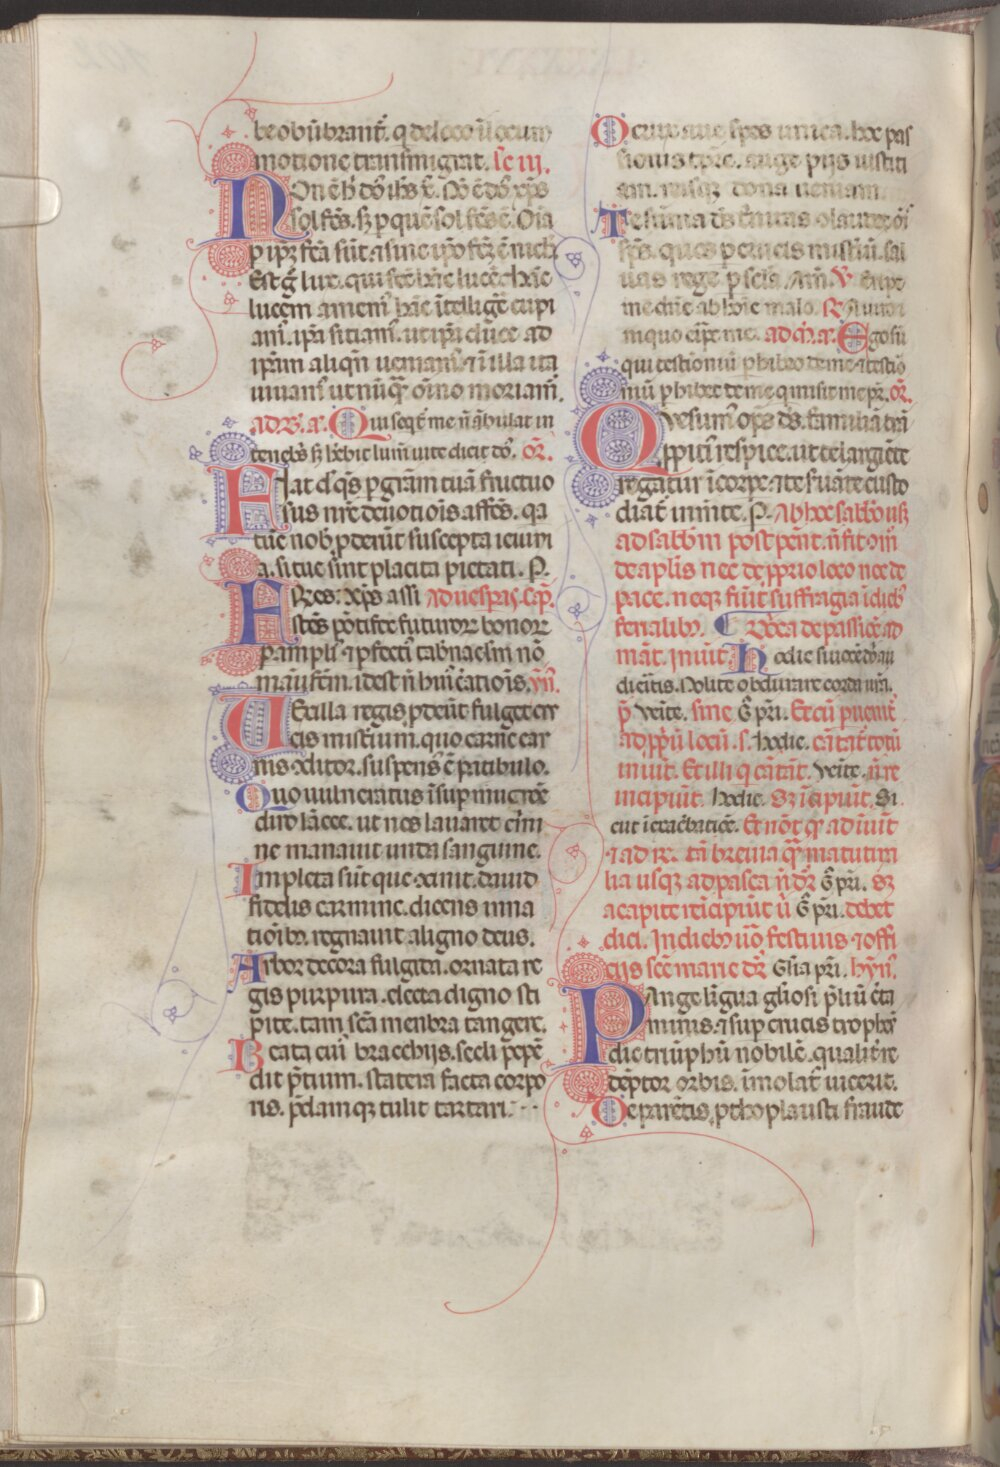 be obūbrant̄. q̄ de loco ī locum
motione transmigrat. Lc̄ iij.
Non ē h̄ dō ih̄s xp̄c. Nō ē dō xp̄s
sol fc̄s. sꝫ p quē sol fc̄s ē. Oīa
p ip̄m fc̄a sūt ⁊ sine ip̄o fc̄m ē nich̄
Est ḡ lux. qui fec̄ hāc lucē. hāc
lucem amem̄. hāc ītelligēe cupi
am̄. ip̄am sitiam̄. ut ip̄a duce ad
ip̄am aliqn̄ ueniam̄. ⁊ ī illa ita
uiuam̄ ut nūq̄ oīno moriam̄.
ad B. a. Qui seqt̄ me n̄ ābulat in
teneb̄s sꝫ h̄ebit lum̄ uite dicit dō. or̄.
Fiat dn̄e q̄s p grām tuā fructuo
sus nr̄e deuotiōis affc̄s. qa
tūc nob̄ prodeūt suscepta ieiuni
a. si tue sint placita pietati. P.
Fr̄es. Xp̄s assi Ad uesp̄as. Cap̄.
stēs pōtifex futuroꝝ bonoꝝ
p ampli⁹ ⁊ pfectī tabnaclm nō
manufc̄m. idest n̄ hui⁹ c̄atiōis. ym̄.
Uexilla regis prodeūt fulget cru
cis mistīum. quo carne car
nis ɔditor. suspēs⁹ ē patibulo.
Quo uulneratus īsup mucrōe
diro lācee. ut nos lauaret crīmi
ne manauit unda sanguine.
Impleta sūt que ɔcinit. dauid
fidelis carmine. dicens in na
tiōib⁹. regnauit a ligno deus.
Arbor decora fulgida. ornata re
gis purpura. electa digno sti
pite. tam sc̄a menbra tangere.
Beata cui⁹ bracchijs. secli pepē
dit p̄tium. statera facta corpo
ris. p̄damqꝫ tulit tartari.
O crux aue spes unica. hoc pas
sionis tp̄re. auge pijs iusti
am. reisqꝫ dona ueniam.
Te sūma ds̄ trinitas collaudet oīs
sp̄s. ques p crucis mistīū. sal
uas rege p scl̄a. Am̄. V Eripe
me dn̄e ab hoīe malo. R A uiro
iniquo eripe me. ad m̄. a. Ego sū
qui testioniū phibeo de me ⁊ testio
niū phibet de me q̄ misit me pr̄. or̄.
Qvesum⁹ op̄s ds̄. familiā tuā
p̄piti⁹ respice. ut te largiēte
regatur ī corpe. ⁊ te suāte custo
diat̄ in mēte. P. Ab hoc sabbo usqꝫ
ad sabbm̄ post pent̄. n̄ fit om̄
de aplīs nec de pprio loco nec de
pace. neqꝫ fiūt suffragia ī dieb⁹
ferialib⁹. Dn̄ica de passiōe ad
mat̄. inuit̄ Hodie si uocē dn̄i au
dieritis. Nolite obdurare corda ura.
p̄s Venite. sine Gl̄a pri. Et cū puenit̄
ad pp̄ū locū. s. hodie. cātat̄ totū
inuit̄. Et illi q̄ cātāt. Venite. n̄ re
incipiūt. hodie. sꝫ īcipiūt. Si
cut ī exacbatiōe. Et nōt̄ qꝫ ad inuit̄
⁊ ad R. tā breuia q̄ꝫ matutina
lia usqꝫ ad pasca n̄ dr̄ Gl̄a pri. sꝫ
a capite reīcipiūt̄ u⁹ Gl̄a pri. debet
dici. In dieb⁹ uō festiuis ⁊ offi
cijs sc̄e marie dr̄ Gl̄ia pri. hym̄.
Pange līgua gl̄iosi pliū ctā
minis. ⁊ sup crucis tropheū
dic triūphū nobilē. qualit̄ re
dēptor orbis. īmolat⁹ uicerit.
De parētis. pthoplausti fraude